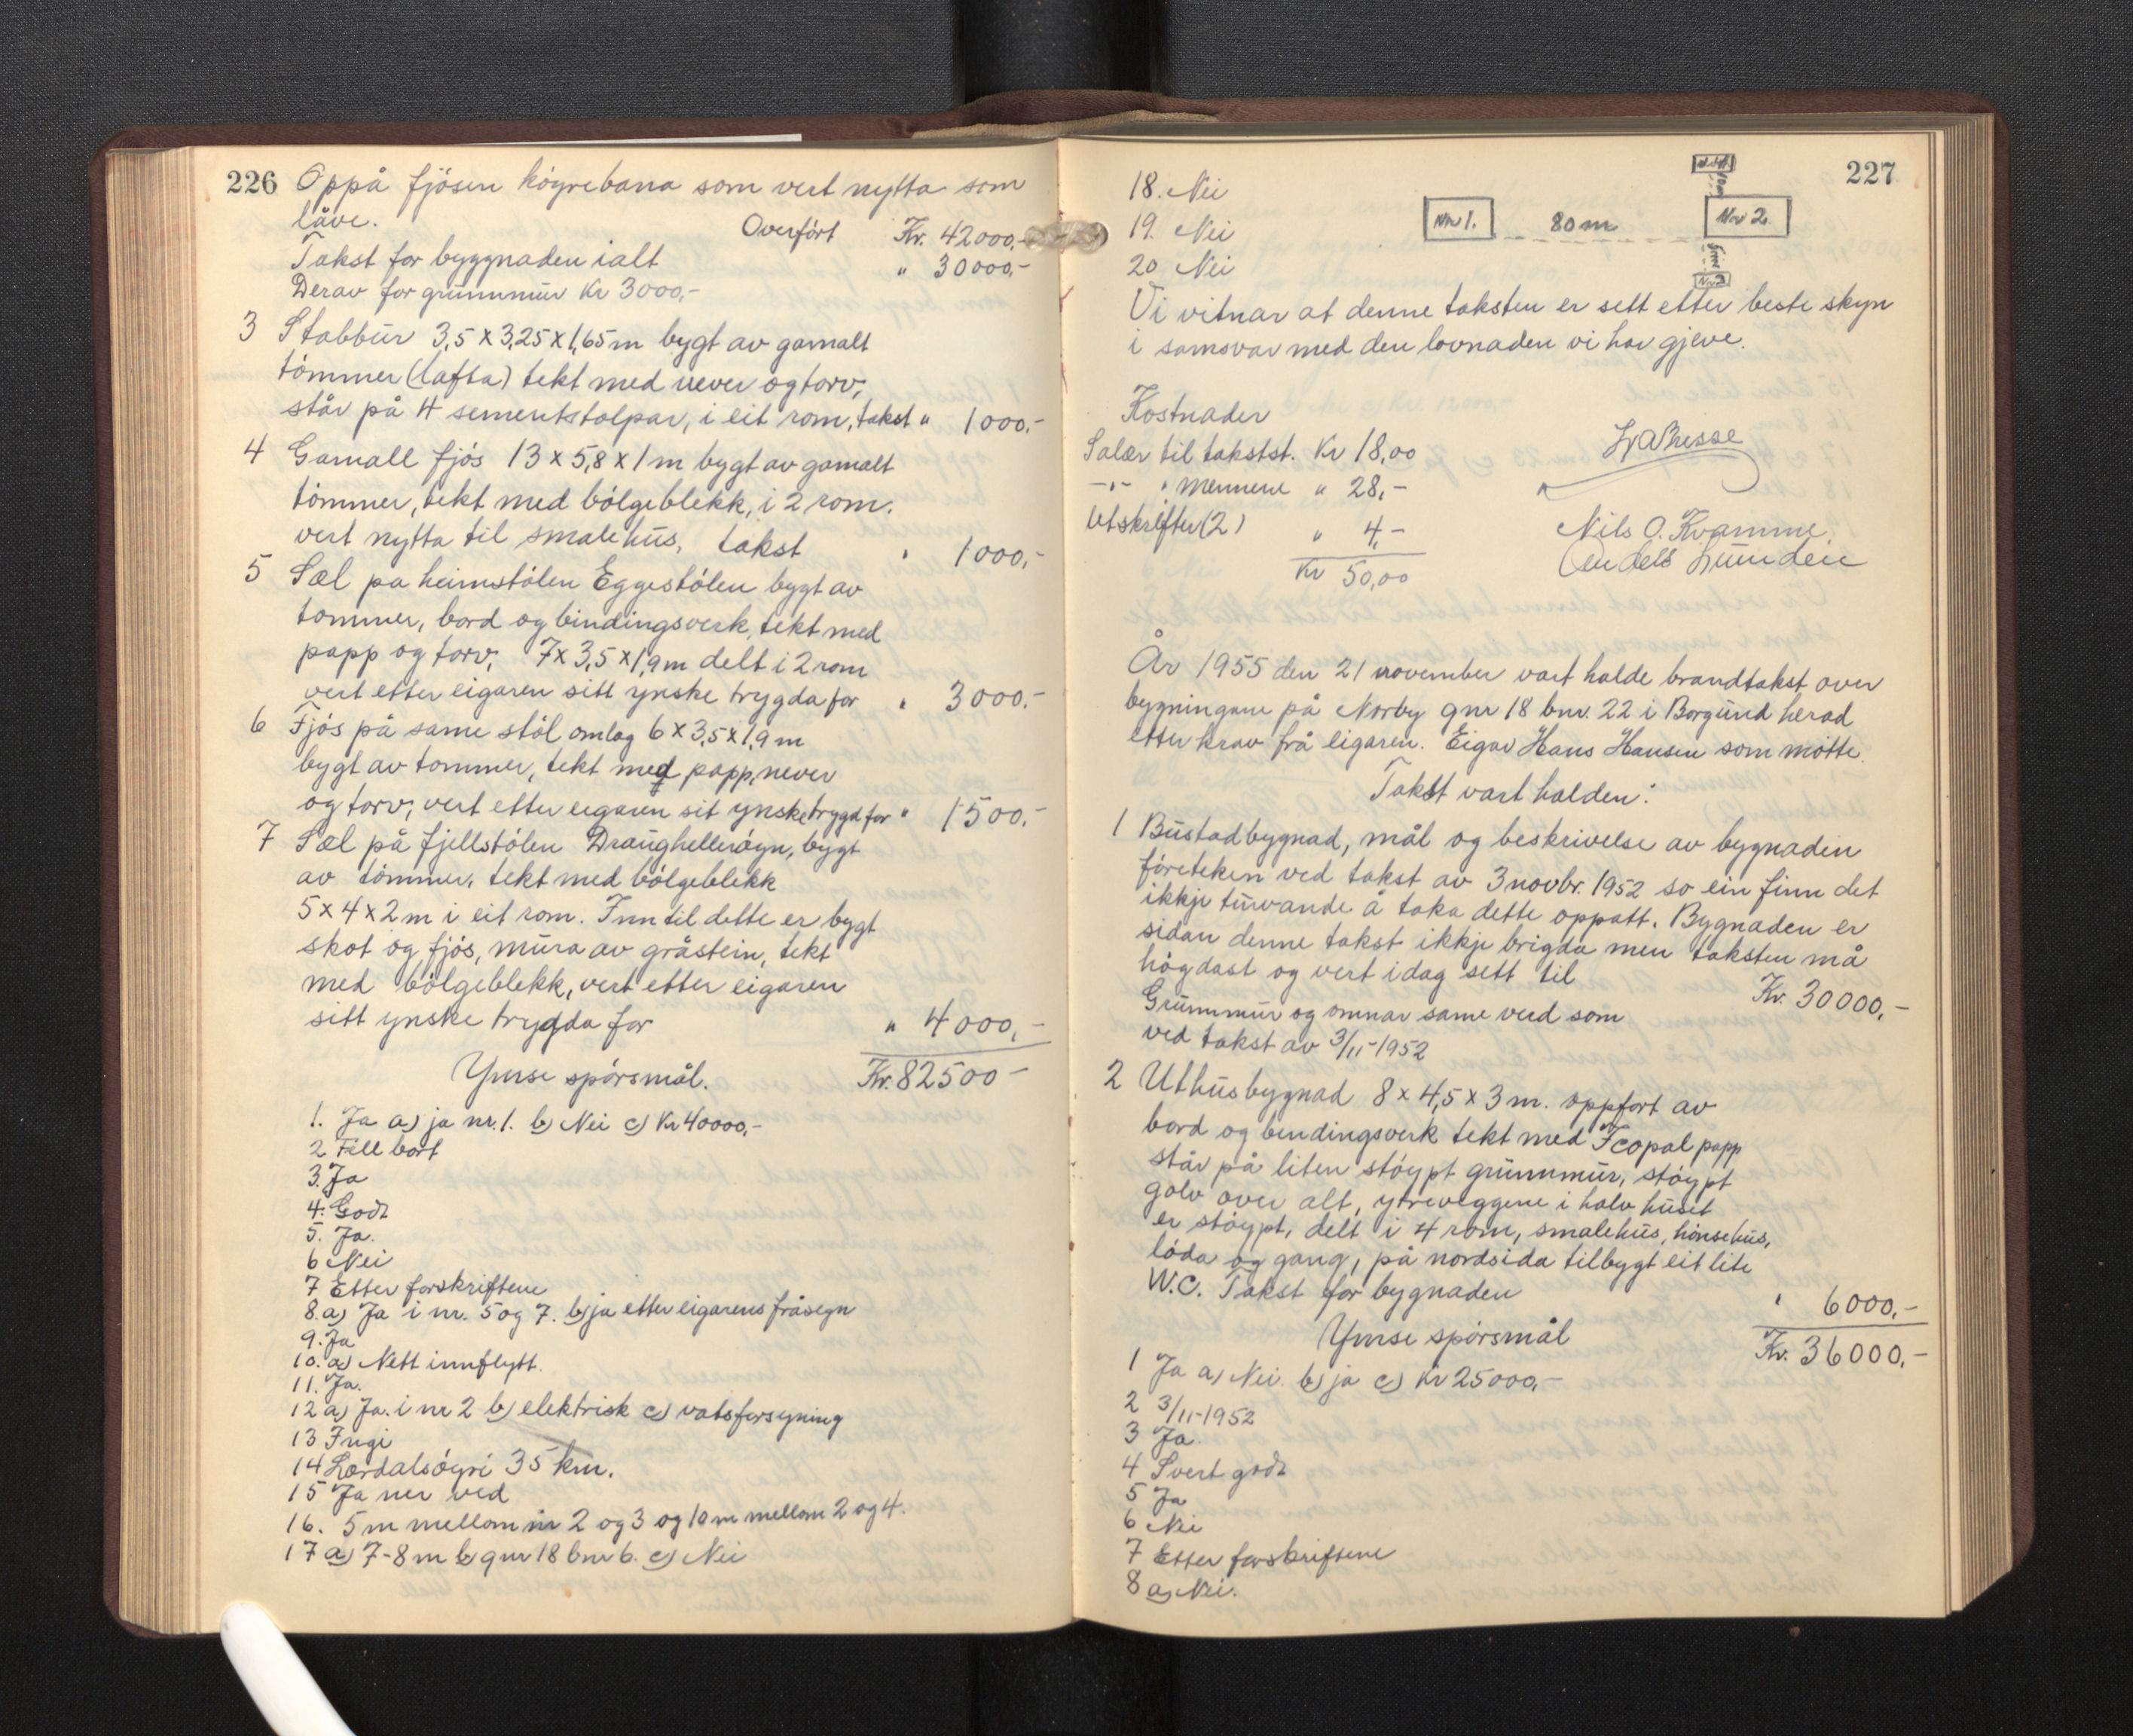 226 Oppå fjösen högrebana som vert nytta som
låve. Overfört Kr. 42000,-
Takst for byggnaden ialt " 30000,-
Derav for grunnmur Kr 3000,-
3 Stabbur 3,5 x 3,25 x 1,65 m bygt av gamalt
tömmer (lafta) tekt med never og torv,
står på 4 sementstolpar, i eit rom, takst " 1000,-
4 Gamall fjös 13 x 5,8 x 1 m bygt av gamalt
tömmer, tekt med bölgeblekk, i 2 rom.
vert nytta til smalehus, takst " 1000,-
5 Sæl pa heimstölen Eggestölen bygt av
tommer, bord og bindingsverk, tekt med
papp og torv, 7 x 3,5 x 1,9 m delt i 2 rom
vert etter eigaren sitt ynske trygda for " 3000,-
6 Fjös på same stöl omlag 6 x 3,5 x 1,9 m
bygt av tommer, tekt med papp, never
og torv, vert etter eigaren sit ynske trygd for " 1500,-
7 Sæl på fjellstölen Draughelleröyn, bygt
av tömmer, tekt med bölgeblekk
5 x 4 x 2 m i eit rom. Inn til dette er bygt
skot og fjös, mura av gråstein, tekt
med bölgeblekk, vert etter eigaren
sitt ynske trygda for " 4000,-
Ymse spörsmål. Kr. 82500 -
1. Ja a) ja nr. 1. b) Nei c) Kr 40000,-
2 Fell bort
3. Ja
4. Godt
5. Ja.
6 Nei
7 Etter forskriftene
8. a) Ja i nr. 5 og 7. b) ja etter eigarens fråsegn
9. Ja
10. a) Nett innflytt.
11. Ja.
12 a) Ja. i nr 2 b) elektrisk c) vatsforsyning
13 Ingi
14 Lærdalsöyri 35 km.
15 Ja ner ved
16. 5 m mellom nr 2 og 3 og 10 m mellom 2 og 4.
17 a) 7-8 m b) gnr 18 bnr 6. c) Nei
227
18. Nei
19. Nei
20 Nei
Nr 1. 80 m Nr 2.
Nr 4
10m
5m
Nr 3
Vi vitnar at denne taksten er sett etter beste skyn
i samsvar med den lovnaden vi har gjeve.
Kostnader
Salær til takstst. Kr 18,00
-"- " mennene " 28,-
Utskrifter (2) " 4,-
Kr 50,00
Nils O. Kvamme
År 1955 den 21 november vart halde brandtakst over
bygningane på Norby gnr 18 bnr. 22 i Borgund herad
etter krav frå eigaren. Eigar Hans Hansen som mötte.
Takst vart halden:
1 Bustadbygnad, mål og beskrivelse av bygnaden
företeken ved takst av 3 novbr. 1952 so ein finn det
ikkje turvande å taka dette oppatt. Bygnaden er
sidan denne takst ikkje brigda men taksten må
högdast og vert idag sett til Kr. 30000,-
Grunnmur og omnar same verd som
ved takst av 3/11-1952
2 Uthusbygnad 8 x 4,5 x 3 m. oppfört av
bord og bindingsverk tekt med Icopal papp
står på liten stöypt grunnmur, stöypt
golv over alt, ytreveggene i halv huset
er stöypt, delt i 4 rom, smalehus, hönsehus,
löda og gang, på nordsida tilbygt eit lite
W.C. Takst for bygnaden " 6000,-
Ymse spörsmål Kr. 36000,-
1 Ja a) Nei. b) ja c) Kr 25000,-
2 3/11-1952
3 Ja.
4 Svert godt
5 Ja
6 Nei
7 Etter forskriftene
8 a) Nei.